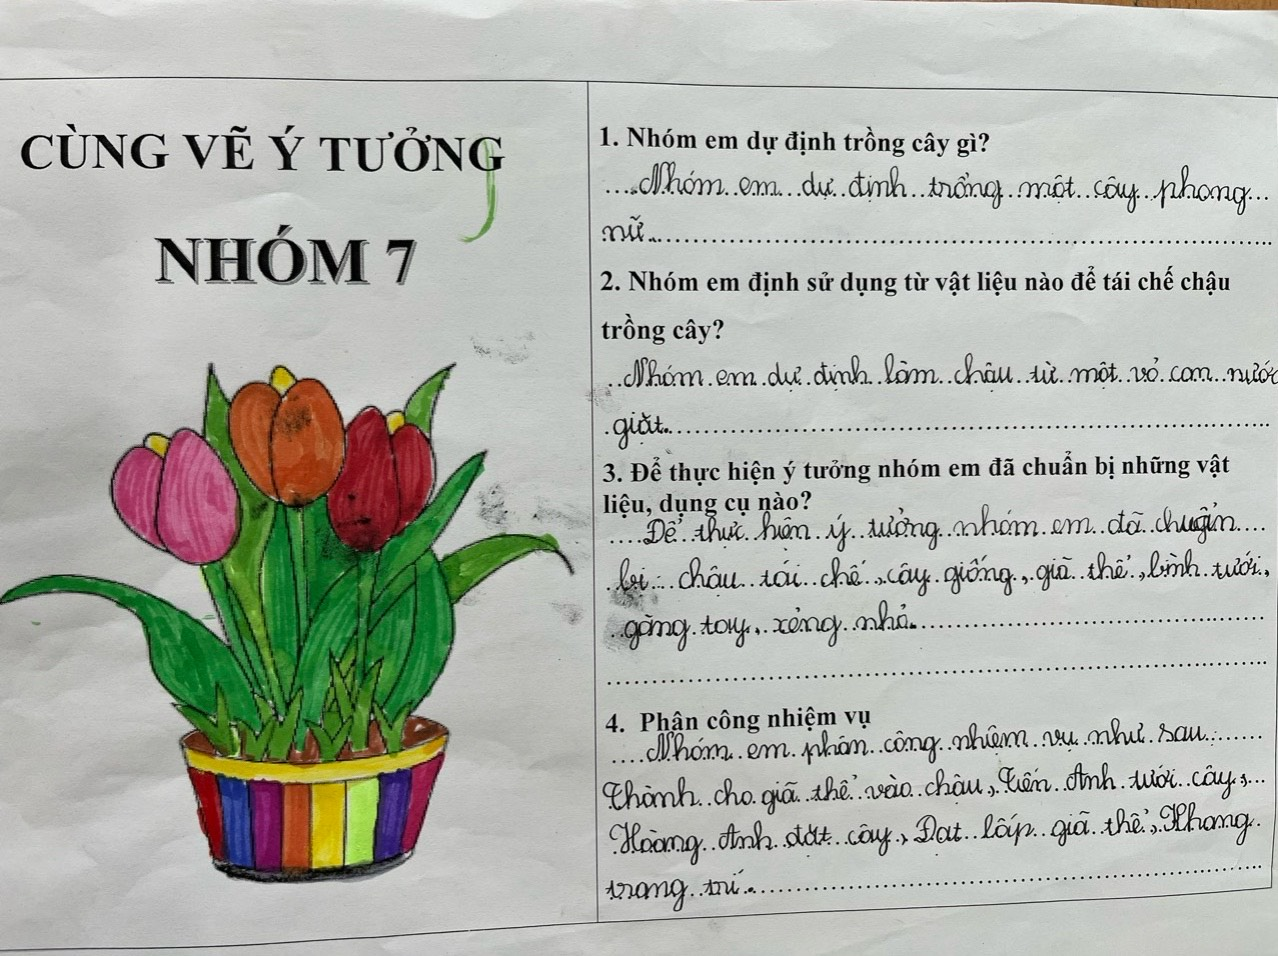 CÙNG VẼ Ý TƯỞNG
NHÓM 7
1. Nhóm em dự định trồng cây gì?
Nhóm em dự định trồng một cây phong
nữ.
2. Nhóm em định sử dụng từ vật liệu nào để tái chế chậu
trồng cây?
Nhóm em dự định làm chậu từ một vỏ can nước
giặt.
3. Để thực hiện ý tưởng nhóm em đã chuẩn bị những vật
liệu, dụng cụ nào?
Để thực hiện ý tưởng nhóm em đã chuẩn
bị: chậu tái chế, cây giống, giã thể, bình tưới,
găng tay, xẻng nhỏ.
4. Phân công nhiệm vụ
Nhóm em phân công nhiệm vụ như sau:
Thành cho giã thể vào chậu, Tiến Anh tưới cây,
Hoàng Anh đặt cây, Đạt lấp giã thể, Phong
trang trí.